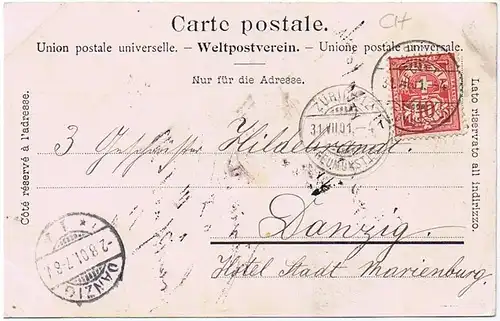 CH
Carte postale.
Union postale universelle. – Weltpostverein. – Unione postale universale.
Nur für die Adresse.
Côté réservé à l'adresse.
Lato riservato all indirizzo.
31.VII.01.
10
3 Geschwister Hildebrandt.
Danzig.
Hotel Stadt Marienburg.
DANZIG
2.8.01.7-8